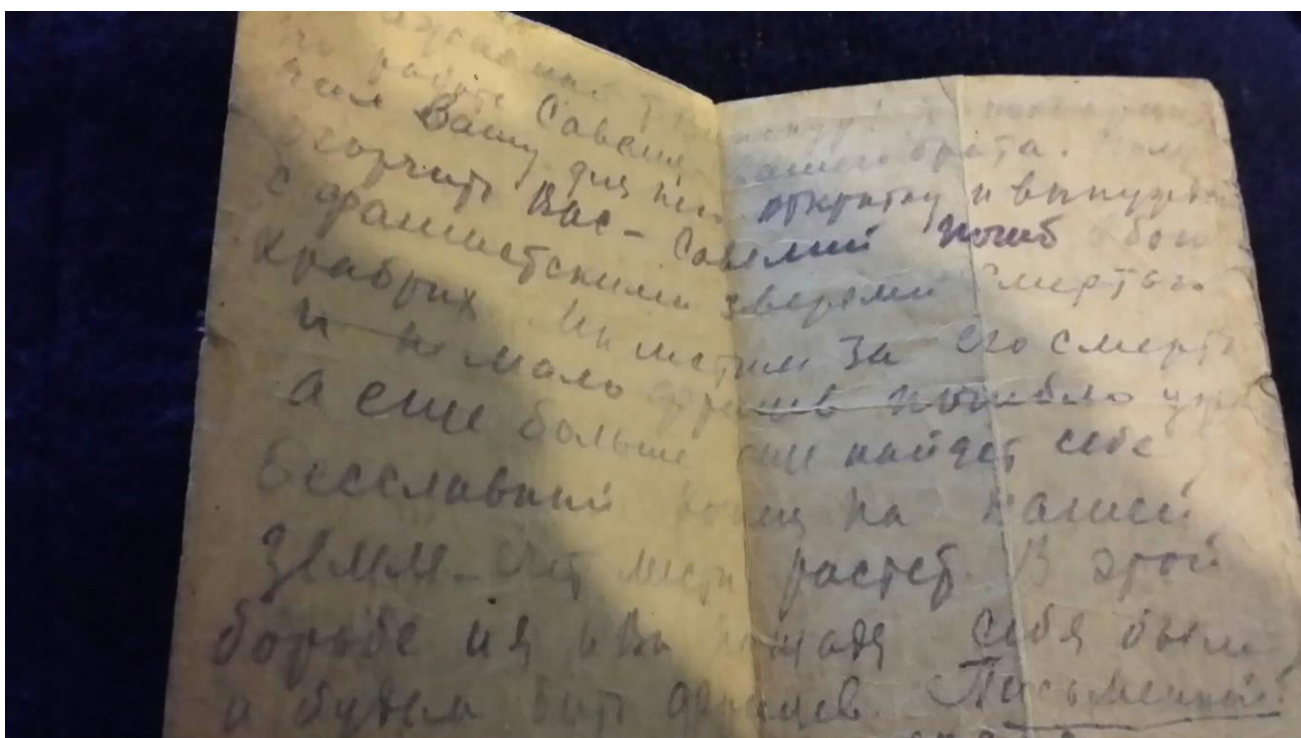 по работе Савелия Вашего брата. Полу
чил Вашу для него открытку и вынужден
огорчить Вас - Савелий погиб в бою
с фашистскими зверями смертью
храбрых Мы мстим за его смерть
и немало фрицев погибло уже
а еще больше еще найдет себе
бесславный конец на нашей
земле - счет мести растет. В этой
борьбе не щадя себя бьем
и будем бить фрицев. Письменный